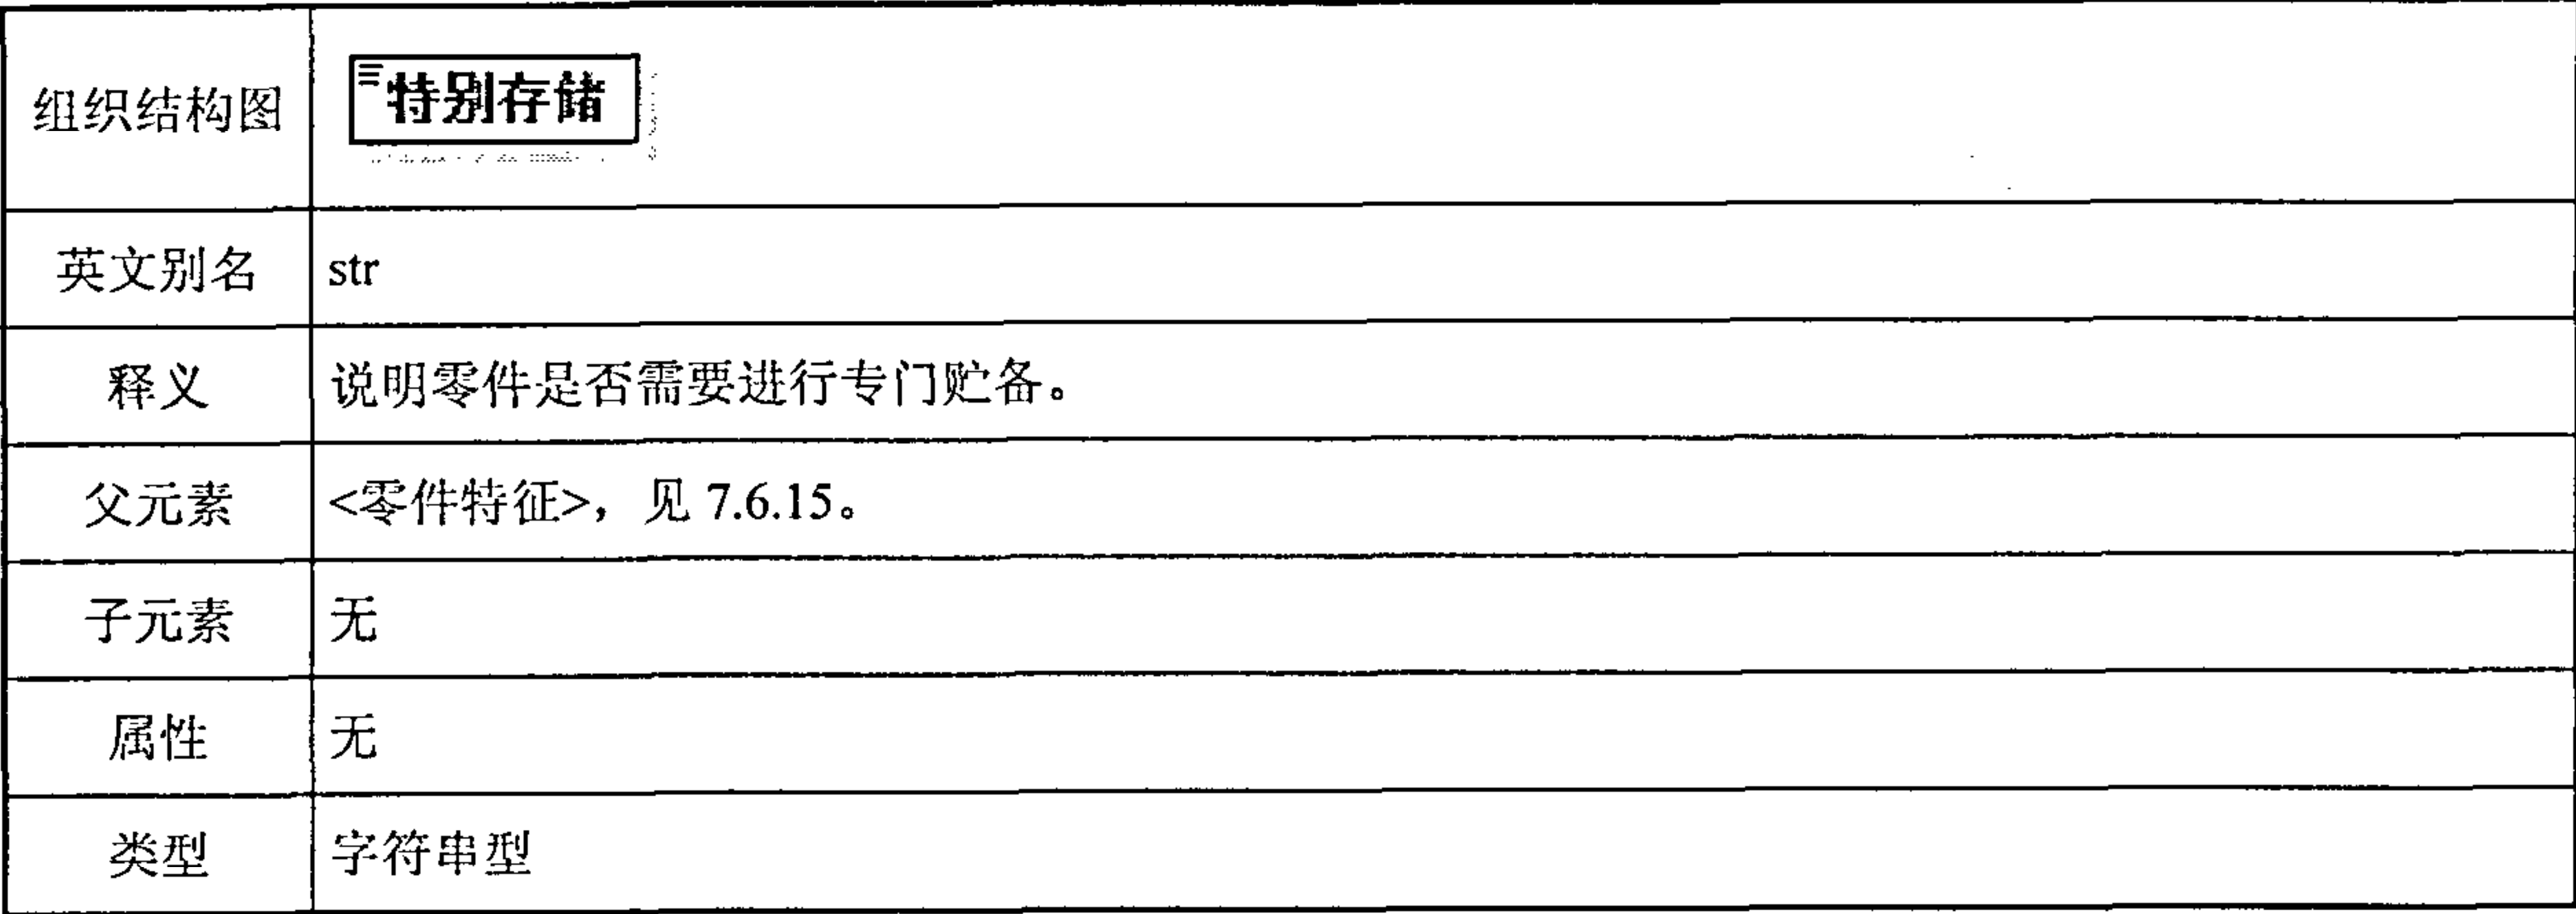 组织结构图 特别存储
英文别名 str
释义 说明零件是否需要进行专门贮备。
父元素 <零件特征>，见 7.6.15。
子元素 无
属性 无
类型 字符串型